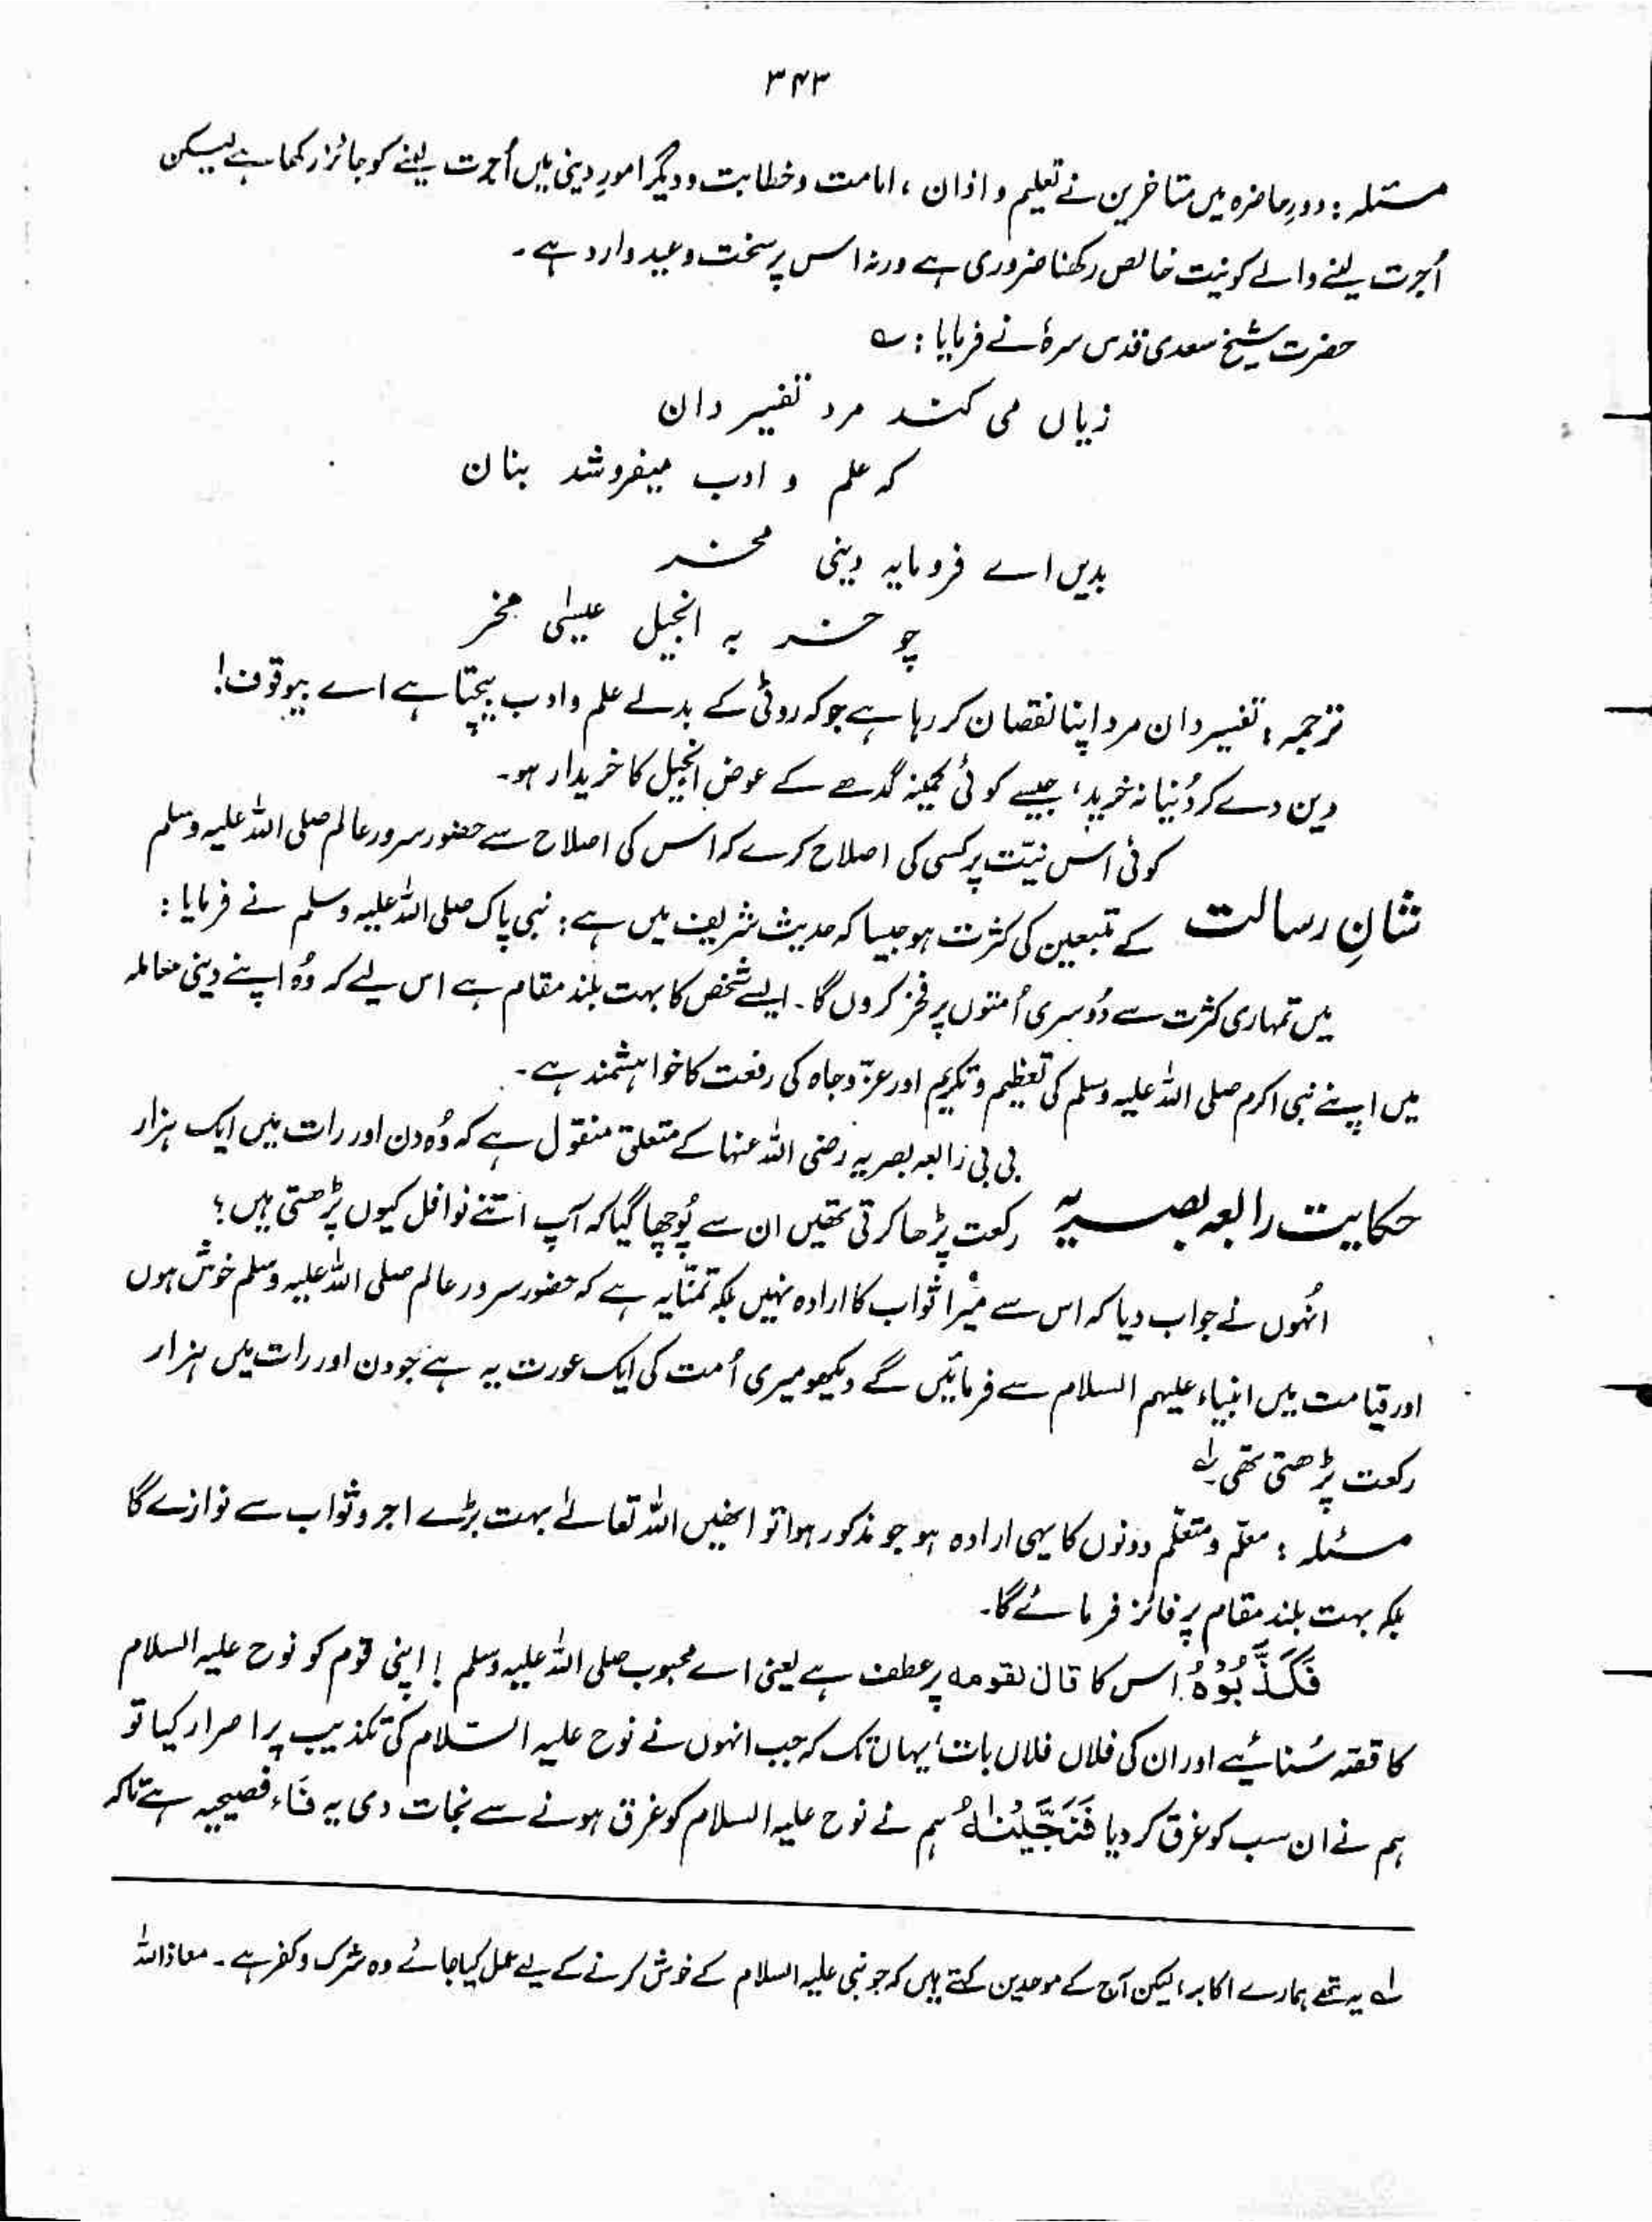 ۳۴۳
مسئلہ : دورِ حاضرہ میں متاخرین نے تعلیم و اذان ، امامت و خطابت و دیگر امورِ دینی میں اُجرت لینے کو جائز رکھا ہے لیکن
اُجرت لینے والے کو نیت خالص رکھنا ضروری ہے ورنہ اس پر سخت وعید وارد ہے ۔
حضرت شیخ سعدی قدس سرہٗ نے فرمایا : ؎
زیاں می کند مرد تفسیر دان
کہ علم و ادب میفروشد بنان
بدیں اے فرومایہ دینی مخر
چو خر بہ انجیل عیسٰی مخر
ترجمہ : تفسیر دان مرد اپنا نقصان کر رہا ہے جو کہ روٹی کے بدلے علم و ادب بیچتا ہے اے بیوقوف !
دین دے کر دُنیا نہ خرید ، جیسے کوئی کمینہ گدھے کے عوض انجیل کا خریدار ہو ۔
کوئی اس نیّت پر کسی کی اصلاح کرے کہ اس کی اصلاح سے حضور سرور عالم صلی اللہ علیہ وسلم
شانِ رسالت کے متبعین کی کثرت ہو جیسا کہ حدیث شریف میں ہے : نبی پاک صلی اللہ علیہ وسلم نے فرمایا :
میں تمہاری کثرت سے دُوسری اُمتوں پر فخر کروں گا ۔ ایسے شخص کا بہت بلند مقام ہے اس لیے کہ وُہ اپنے دینی معاملہ
میں اپنے نبی اکرم صلی اللہ علیہ وسلم کی تعظیم و تکریم اور عزّ و جاہ کی رفعت کا خواہشمند ہے ۔
بی بی رابعہ بصریہ رضی اللہ عنہا کے متعلق منقول ہے کہ وُہ دن اور رات میں ایک ہزار
حکایت رابعہ بصریہ رکعت پڑھا کرتی تھیں ان سے پُوچھا گیا کہ آپ اتنے نوافل کیوں پڑھتی ہیں ؟
انہُوں نے جواب دیا کہ اس سے میرا ثواب کا ارادہ نہیں بلکہ تمنّا یہ ہے کہ حضور سرور عالم صلی اللہ علیہ وسلم خوش ہوں
اور قیامت میں انبیاء علیہم السلام سے فرمائیں گے دیکھو میری اُمت کی ایک عورت یہ ہے جو دن اور رات میں ہزار
رکعت پڑھتی تھی ۔ لے
مسئلہ : معلّم و متعلّم دونوں کا یہی ارادہ ہو جو مذکور ہوا تو انھیں اللہ تعالےٰ بہت بڑے اجر و ثواب سے نوازے گا
بلکہ بہت بلند مقام پر فائز فرمائے گا ۔
فَكَذَّبُوْهُ اس کا قال لقومه پر عطف ہے یعنی اے محبوب صلی اللہ علیہ وسلم ! اپنی قوم کو نوح علیہ السلام
کا قصّہ سُنائیے اور ان کی فلاں فلاں بات ، یہاں تک کہ جب انہوں نے نوح علیہ السّلام کی تکذیب پر اصرار کیا تو
ہم نے ان سب کو غرق کر دیا فَنَجَّيْنٰهُ ہم نے نوح علیہ السلام کو غرق ہونے سے نجات دی یہ فاء فصیحیہ ہے تاکہ
لے یہ تھے ہمارے اکابر ، لیکن آج کے موحدین کہتے ہیں کہ جو نبی علیہ السلام کے خوش کرنے کے لیے عمل کیا جائے وہ شرک و کفر ہے ۔ معاذ اللہ